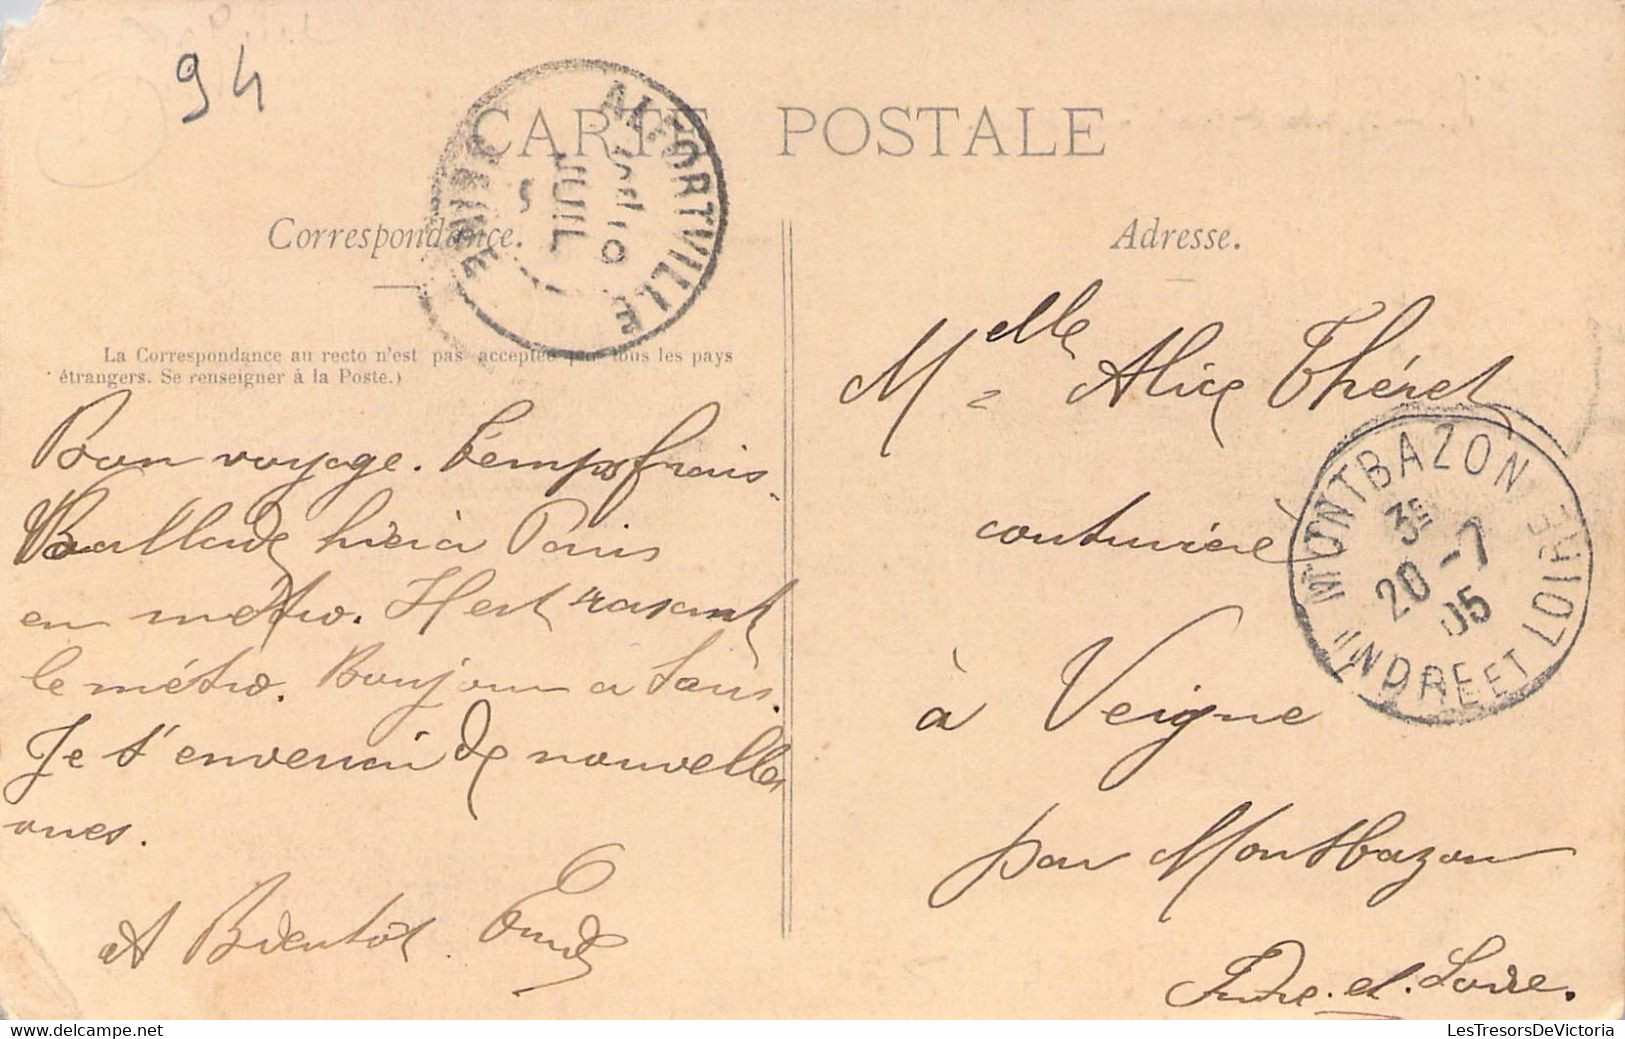 94
CARTE POSTALE
ALFORTVILLE
JUIL
SEINE
Correspondance.
Adresse.
La Correspondance au recto n'est pas acceptée par tous les pays
étrangers. Se renseigner à la Poste.)
Bon voyage. Temps frais.
Ballade hier à Paris
en métro. Il est rasant
le métro. Bonjour à tous.
Je t'enverrai de nouvelles
vues.
A Bientôt.
Melle Alice Théret
couturière
à Veigné
par Montbazon
Indre-et-Loire.
MONTBAZON
3E
20 -7
05
INDRE ET LOIRE
LesTresorsDeVictoria